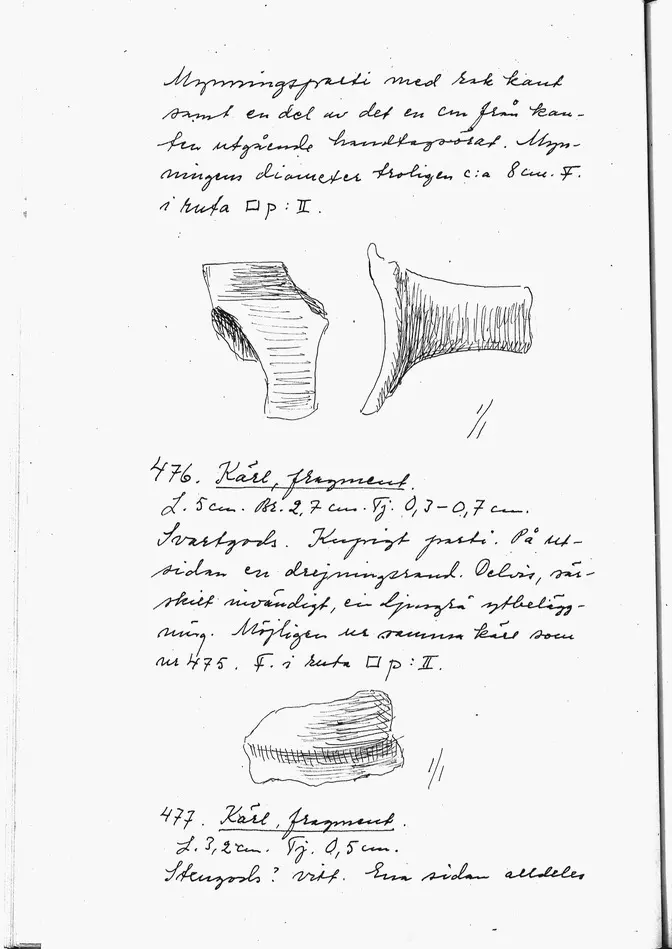 Mynningsparti med rak kant
samt en del av det en cm från kan-
ten utgående handtagsörat. Myn-
ningens diameter troligen c:a 8 cm. F.
i ruta □ p : II .
1/1
476. Kärl, fragment.
L. 5 cm. Br. 2,7 cm. Tj. 0,3-0,7 cm.
Svartgods. Kupigt parti. På ut-
sidan en drejningsrand. Delvis, sär-
skilt invändigt, en ljusgrå ytbelägg-
ning. Möjligen ur samma kärl som
nr 475. F. i ruta □ p : II.
1/1
477. Kärl, fragment.
L. 3,2 cm. Tj. 0,5 cm.
Stengods? vitt. Ena sidan alldeles